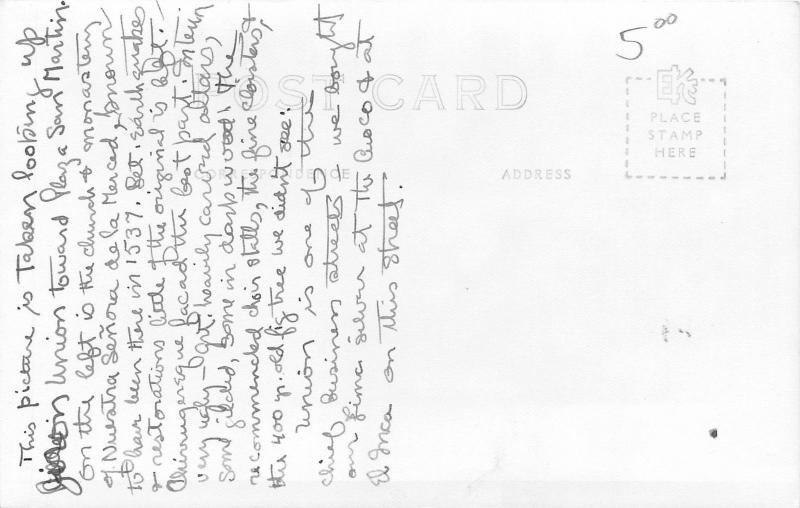 This picture is taken looking up
Jiron Union toward Plaza San Martin.
On the left is the church & monastery
of Nuestra Señora de la Merced, known
to have been there in 1537. Bet. earthquakes
& restorations little of the original is left.
Churrigueresque facade the best part. Interior
very ugly - Got. heavily carved altars,
some gilded, some in dark wood. The
recommended choir stalls, the fine cloisters, &
the 400 yr. old fig tree we didn't see.
Union is one of the
chief business streets - we bought
our Lima silver at the Cuzco & at
El Inca on this street.
POST CARD
CORRESPONDENCE
ADDRESS
5⁰⁰
EKC
PLACE
STAMP
HERE